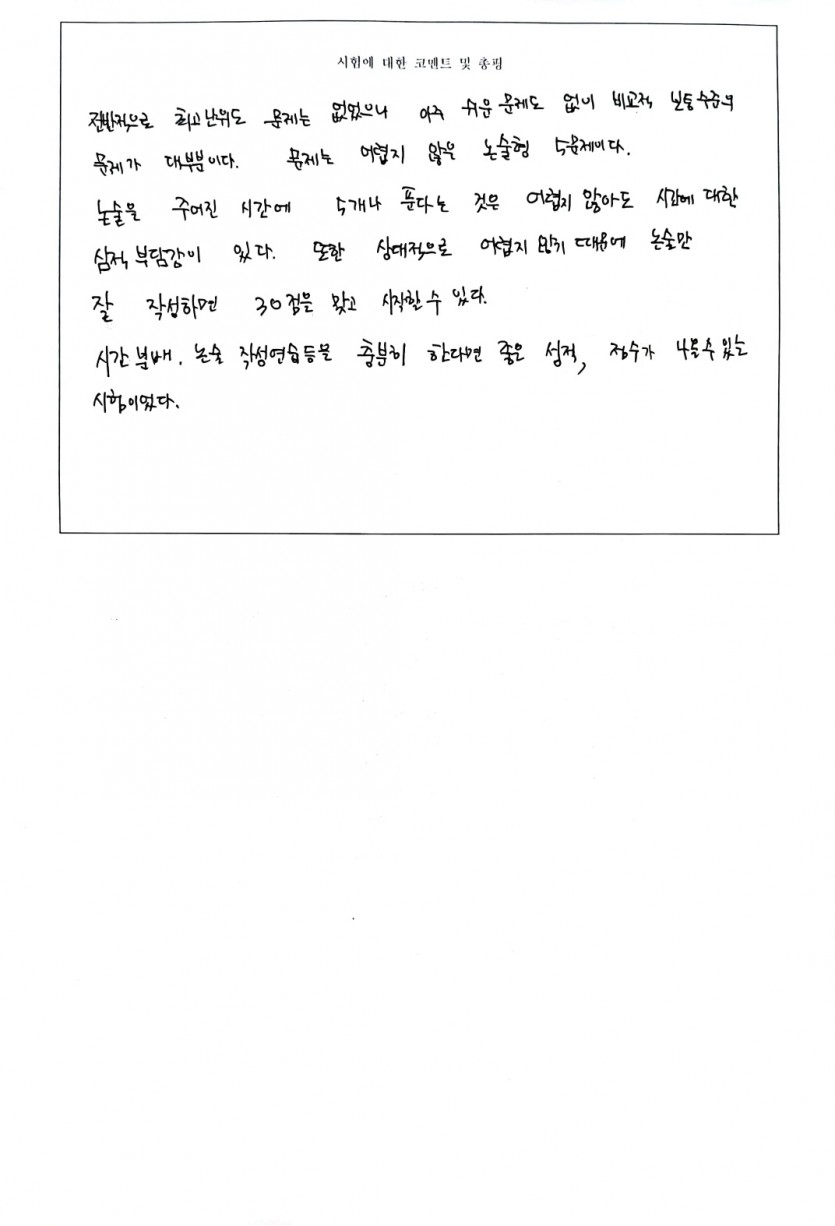 시험에 대한 코멘트 및 총평
전반적으로 최고난위도 문제는 없었으나 아주 쉬운 문제도 없이 비교적 보통수준의
문제가 대부분이다. 문제는 어렵지 않은 논술형 5문제이다.
논술을 주어진 시간에 5개나 푼다는 것은 어렵지 않아도 시간에 대한
심적 부담감이 있다. 또한 상대적으로 어렵지 않기 때문에 논술만
잘 작성하면 30점을 맞고 시작할 수 있다.
시간 분배, 논술 작성연습등을 충분히 한다면 좋은 성적, 점수가 나올수 있는
시험이었다.